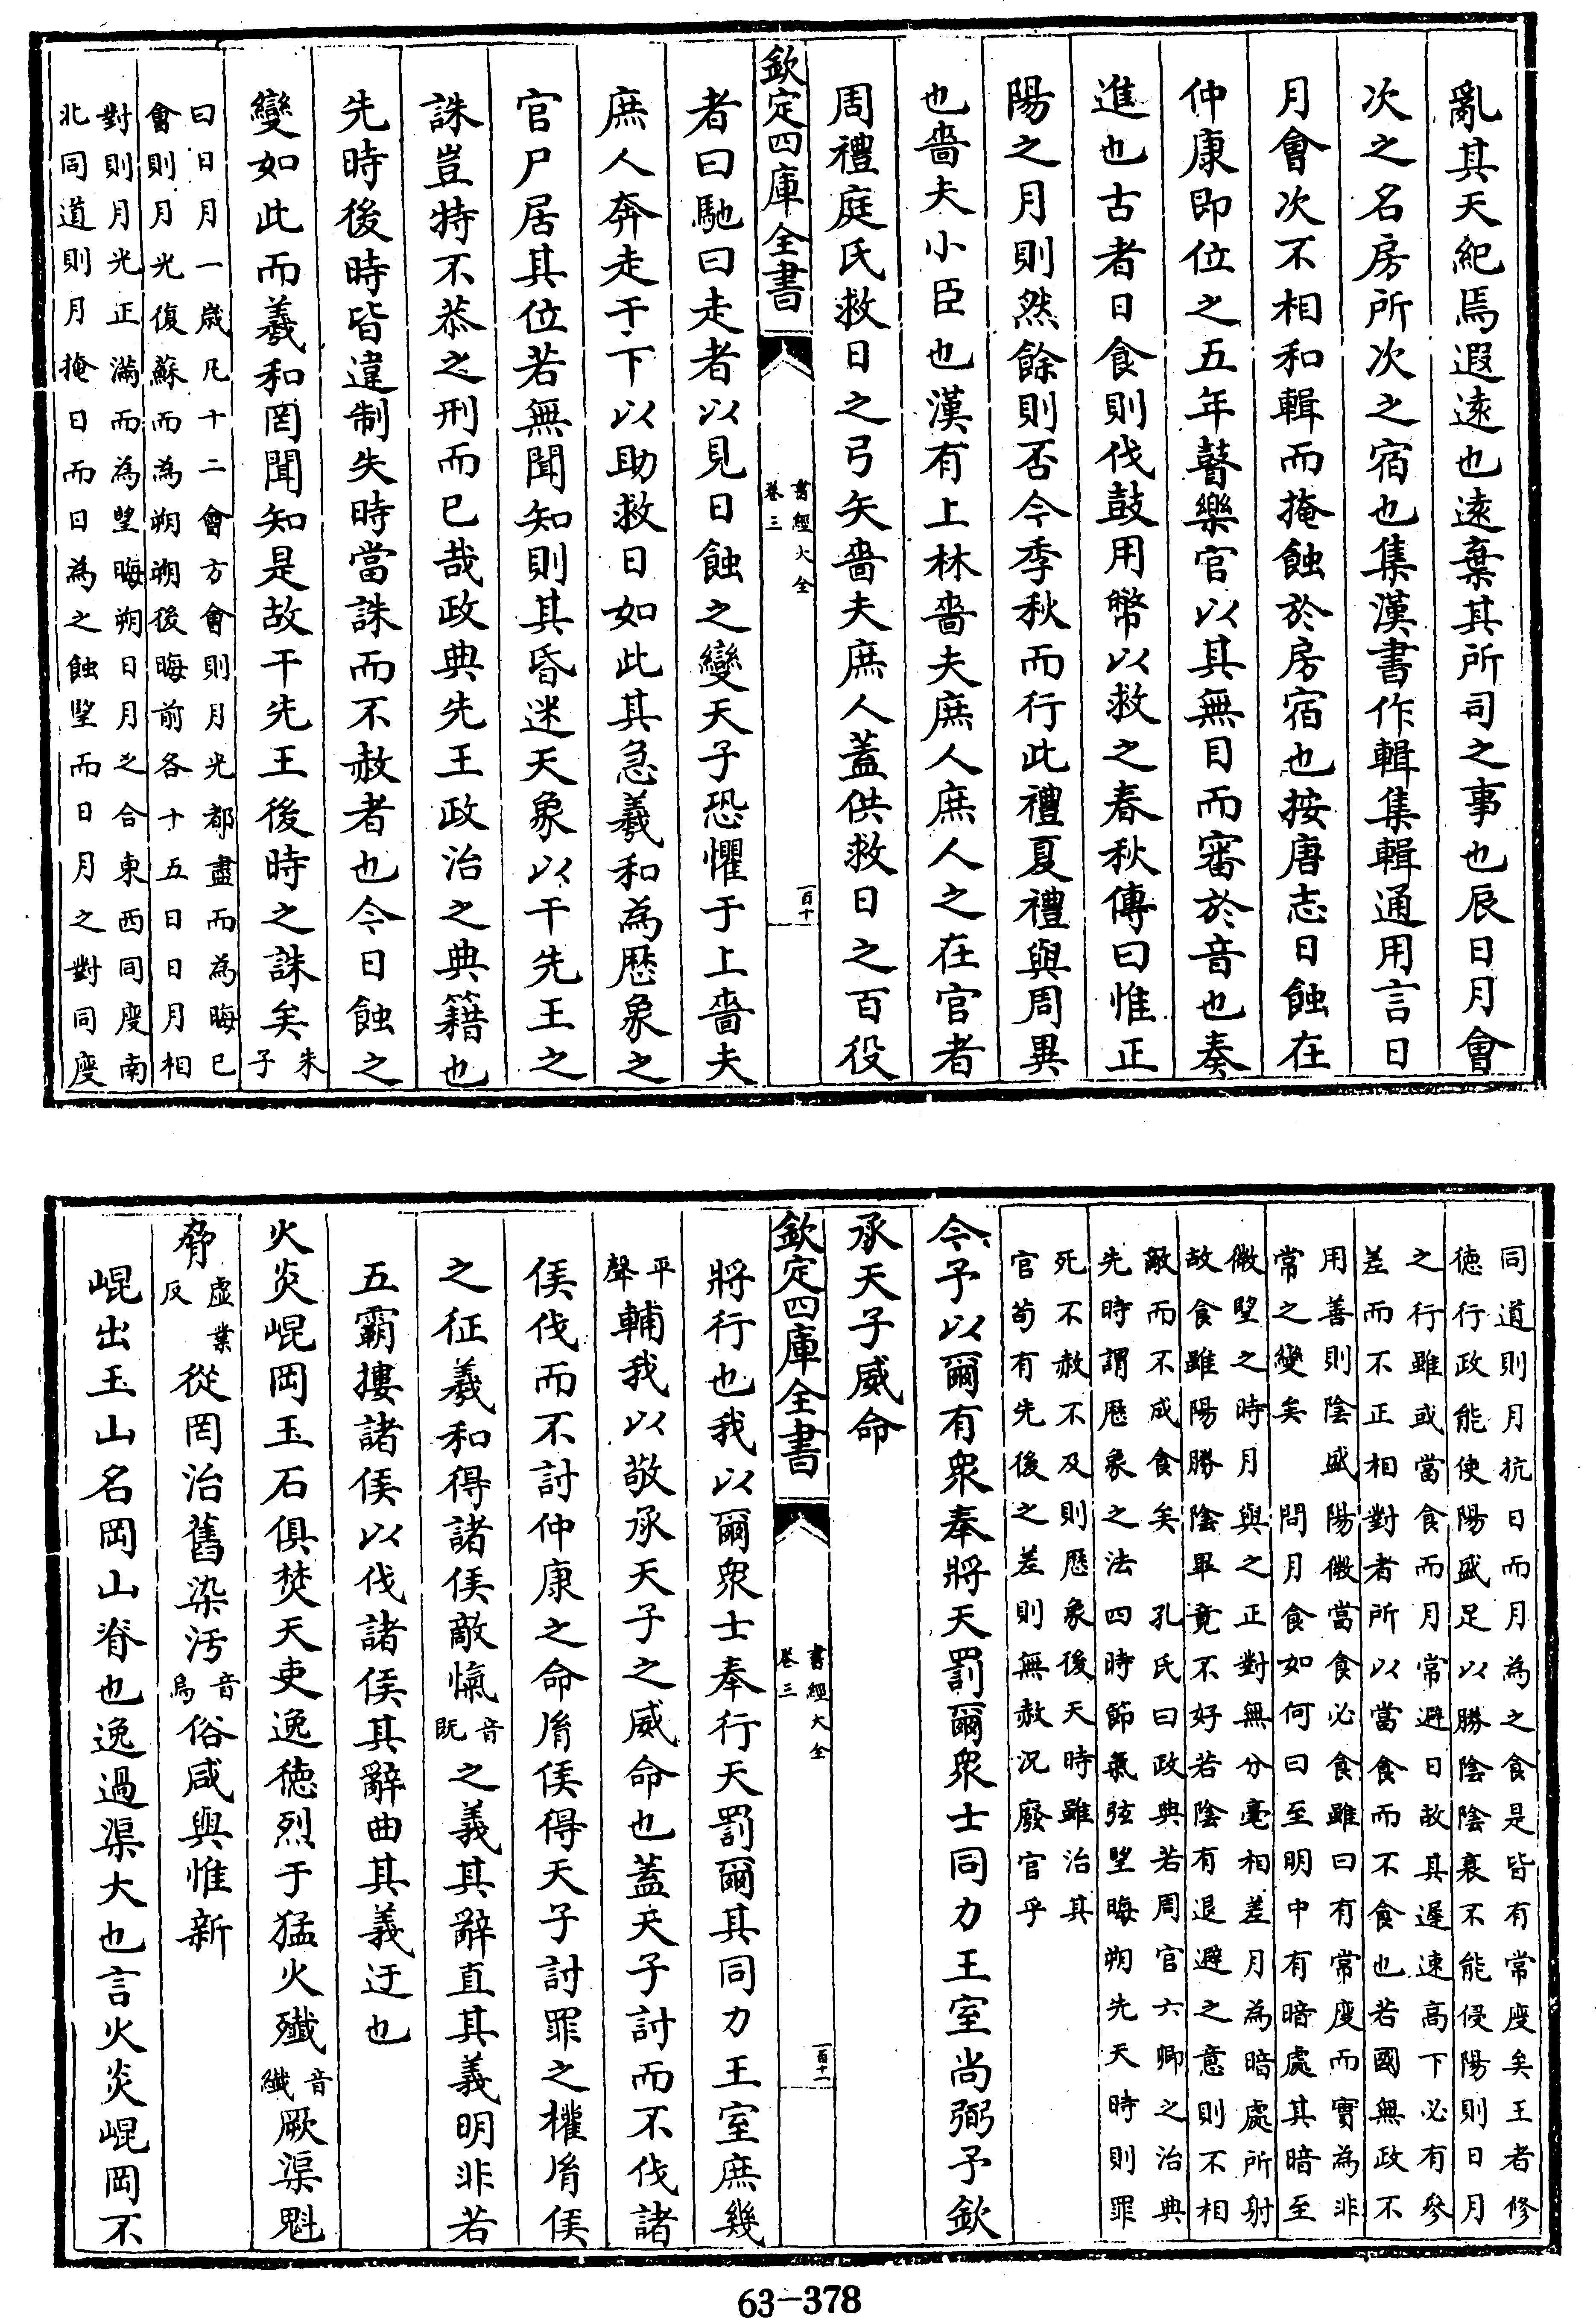 亂其天紀焉遐遠也遠棄其所司之事也辰日月會
次之名房所次之宿也集漢書作輯集輯通用言日
月會次不相和輯而掩蝕於房宿也按唐志日蝕在
仲康即位之五年瞽樂官以其無目而審於音也奏
進也古者日食則伐鼓用幣以救之春秋傳曰惟正
陽之月則然餘則否今季秋而行此禮夏禮與周異
也嗇夫小臣也漢有上林嗇夫庶人庶人之在官者
周禮庭氏救日之弓矢嗇夫庶人蓋供救日之百役
欽定四庫全書
書經大全
卷三
一百十
者曰馳曰走者以見日蝕之變天子恐懼于上嗇夫
庶人奔走于下以助救日如此其急羲和為厯象之
官尸居其位若無聞知則其昏迷天象以干先王之
誅豈特不恭之刑而已哉政典先王政治之典籍也
先時後時皆違制失時當誅而不赦者也今日蝕之
變如此而羲和罔聞知是故干先王後時之誅矣
朱
子
曰日月一歲凡十二會方會則月光都盡而為晦已
會則月光復蘇而為朔朔後晦前各十五日日月相
對則月光正滿而為望晦朔日月之合東西同度南
北同道則月掩日而日為之蝕望而日月之對同度
同道則月抗日而月為之食是皆有常度矣王者修
徳行政能使陽盛足以勝陰陰衰不能侵陽則日月
之行雖或當食而月常避日故其遲速高下必有參
差而不正相對者所以當食而不食也若國無政不
用善則陰盛陽微當食必食雖曰有常度而實為非
常之變矣 問月食如何曰至明中有暗處其暗至
微望之時月與之正對無分毫相差月為暗處所射
故食雖陽勝陰畢竟不好若陰有退避之意則不相
敵而不成食矣 孔氏曰政典若周官六卿之治典
先時謂厯象之法四時節氣弦望晦朔先天時則罪
死不赦不及則厯象後天時雖治其
官苟有先後之差則無赦況廢官乎
今予以爾有衆奉將天罰爾衆士同力王室尚弼予欽
承天子威命
欽定四庫全書
書經大全
卷三
一百十一
將行也我以爾衆士奉行天罰爾其同力王室庶幾
平
聲
輔我以敬承天子之威命也蓋天子討而不伐諸
侯伐而不討仲康之命胤侯得天子討罪之權胤侯
之征羲和得諸侯敵愾音既之義其辭直其義明非若
五霸摟諸侯以伐諸侯其辭曲其義迂也
火炎崐岡玉石俱焚天吏逸徳烈于猛火殲音纎厥渠魁
脅虛業反從罔治舊染汚音烏俗咸與惟新
崐出玉山名岡山脊也逸過渠大也言火炎崐岡不
63-378